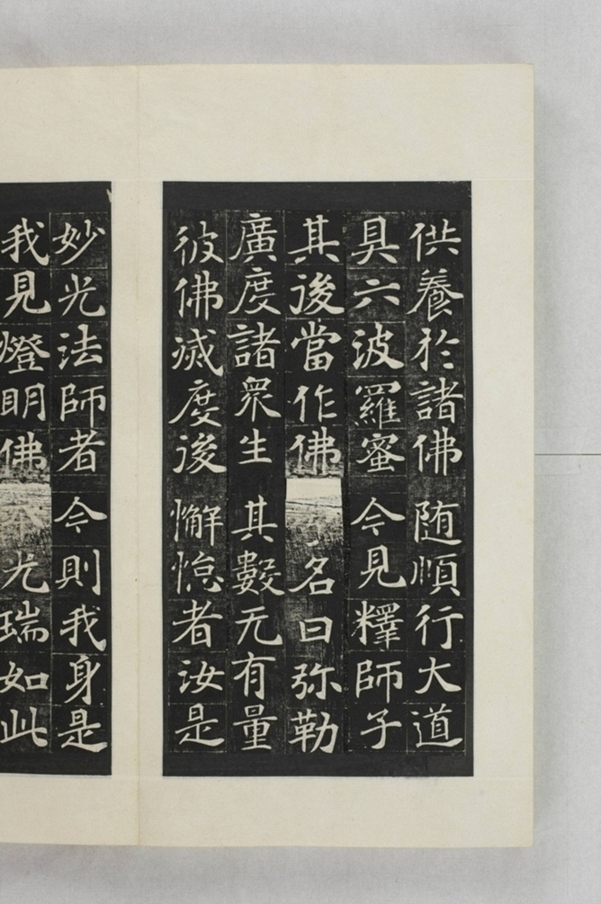 供養扵諸佛 随順行大道
具六波羅蜜 今見釋師子
其後當作佛 名曰弥勒
廣度諸衆生 其數无有量
彼佛滅度後 懈怠者汝是
妙光法師者 今則我身是
我見燈明佛 光瑞如此